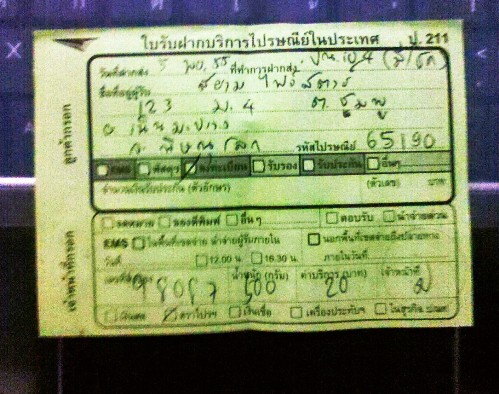 ใบรับฝากบริการไปรษณีย์ในประเทศ ป. 211
วันที่ฝากส่ง 5 พย. 55 ที่ทำการฝากส่ง
ชื่อที่อยู่ผู้รับ สยาม
123 ม. 4 ต. ชุมพู
รหัสไปรษณีย์ 65190
ลูกค้ากรอก
EMS พัสดุฯ ลงทะเบียน รับรอง รับประกัน อื่นๆ
จำนวนเงินรับประกัน (ตัวอักษร) (ตัวเลข) บาท
จดหมาย ของตีพิมพ์ อื่น ๆ ตอบรับ นำจ่ายด่วน
EMS ในพื้นที่เขตจ่าย นำจ่ายผู้รับภายใน นอกพื้นที่เขตจ่ายถึงปลายทาง
วันที่ 12.00 น. 16.30 น. ภายในวันที่
เจ้าหน้าที่กรอก
น้ำหนัก (กรัม) ค่าบริการ (บาท) เจ้าหน้าที่
500 20
เงินสด ตราไปรฯ เงินเชื่อ เครื่องประทับฯ